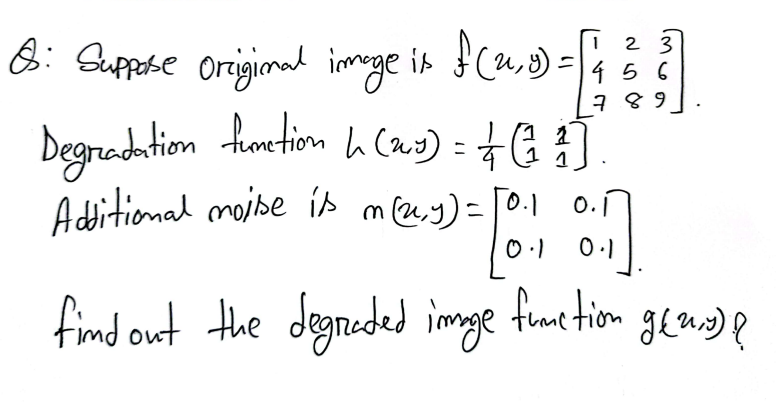 Q: Suppose original image is f(x,y) = [1 2 3
4 5 6
7 8 9].
Degradation function h(x,y) = 1/4 [1 1
1 1].
Additional noise is n(x,y) = [0.1 0.1
0.1 0.1].
find out the degraded image function g(x,y)?